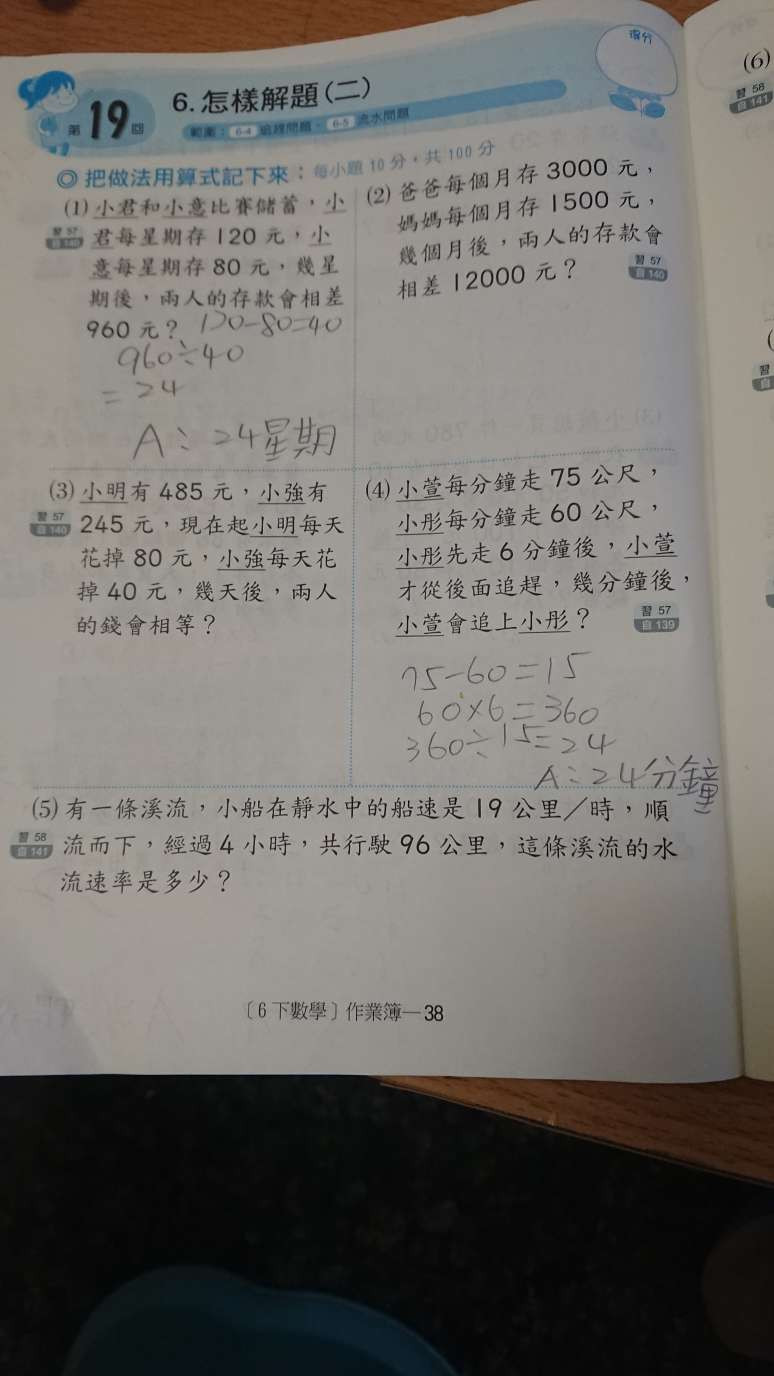 得分
第19回
6.怎樣解題(二)
範圍：6-4 追趕問題、6-5 流水問題
◎ 把做法用算式記下來：每小題 10 分，共 100 分
(1) 小君和小意比賽儲蓄，小
習 57
自 140
君每星期存 120 元，小
意每星期存 80 元，幾星
期後，兩人的存款會相差
960 元？
120-80=40
960÷40
=24
A：24星期
(2) 爸爸每個月存 3000 元，
媽媽每個月存 1500 元，
幾個月後，兩人的存款會
相差 12000 元？
習 57
自 140
(3) 小明有 485 元，小強有
習 57
自 140
245 元，現在起小明每天
花掉 80 元，小強每天花
掉 40 元，幾天後，兩人
的錢會相等？
(4) 小萱每分鐘走 75 公尺，
小彤每分鐘走 60 公尺，
小彤先走 6 分鐘後，小萱
才從後面追趕，幾分鐘後，
小萱會追上小彤？
習 57
自 139
75-60=15
60×6=360
360÷15=24
A：24分鐘
(5) 有一條溪流，小船在靜水中的船速是 19 公里／時，順
習 58
自 141
流而下，經過 4 小時，共行駛 96 公里，這條溪流的水
流速率是多少？
〔6下數學〕作業簿—38
(6)
習 58
自 141
習
自